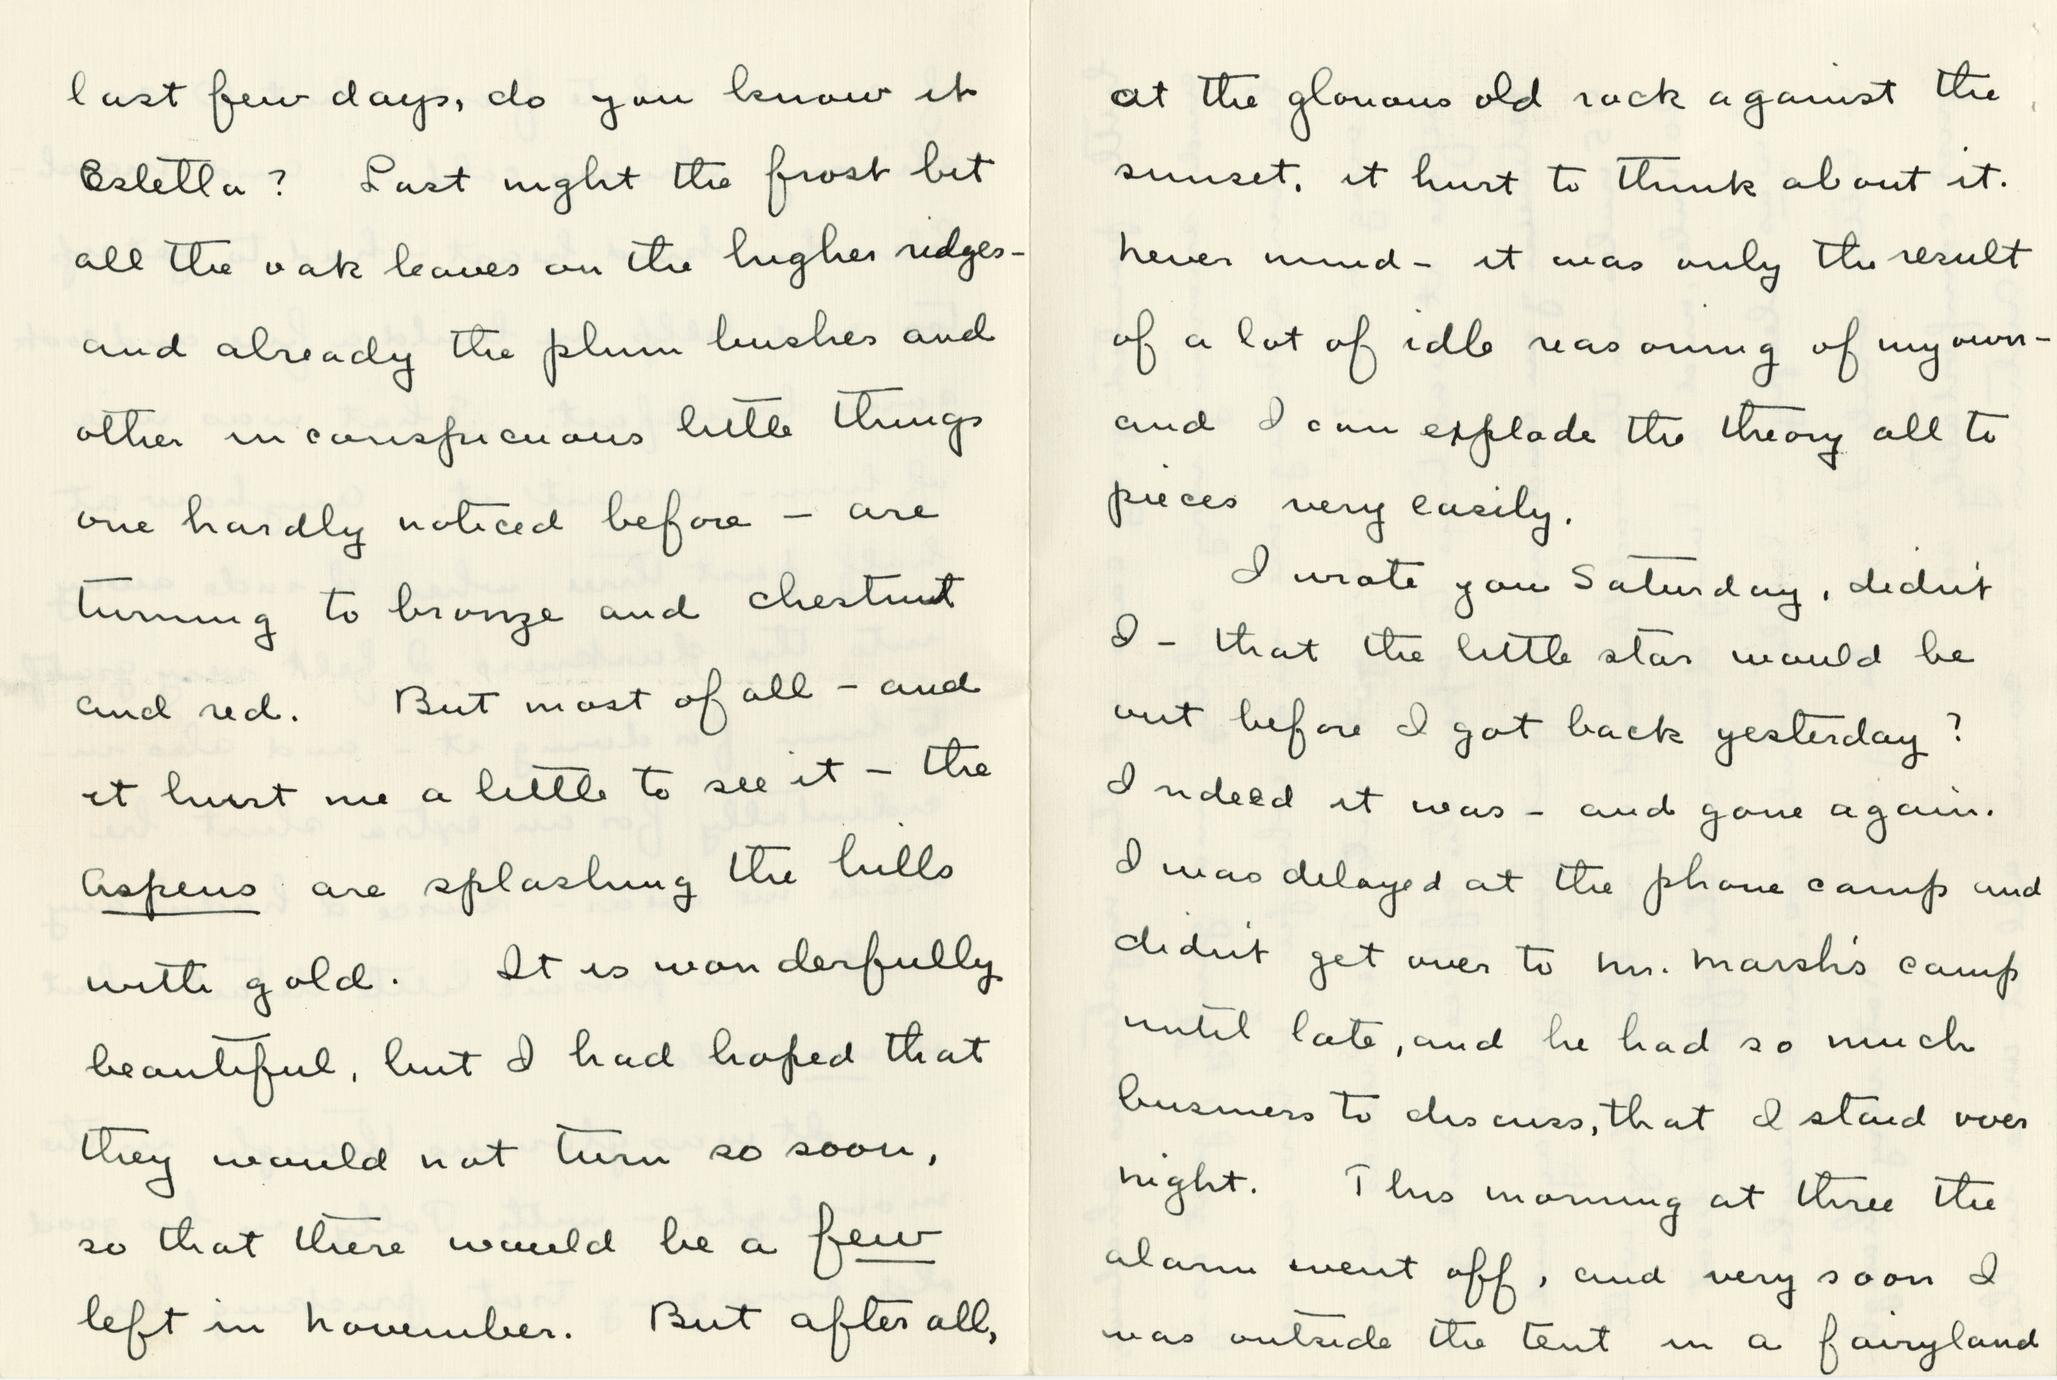 last few days, do you know it
Estella? Last night the frost bit
all the oak leaves on the higher ridges-
and already the plum bushes and
other inconspicuous little things
one hardly noticed before - are
turning to bronze and chestnut
and red. But most of all - and
it hurt me a little to see it - the
aspens are splashing the hills
with gold. It is wonderfully
beautiful, but I had hoped that
they would not turn so soon,
so that there would be a few
left in november. But after all,
at the glorious old rock against the
sunset, it hurt to think about it.
never mind - it was only the result
of a lot of idle reasoning of my own-
and I can explode the theory all to
pieces very easily.
I wrote you Saturday, didn't
I - that the little star would be
out before I got back yesterday?
Indeed it was - and gone again.
I was delayed at the phone camp and
didn't get over to mr. marsh's camp
until late, and he had so much
business to discuss, that I staid over
night. This morning at three the
alarm went off, and very soon I
was outside the tent in a fairyland